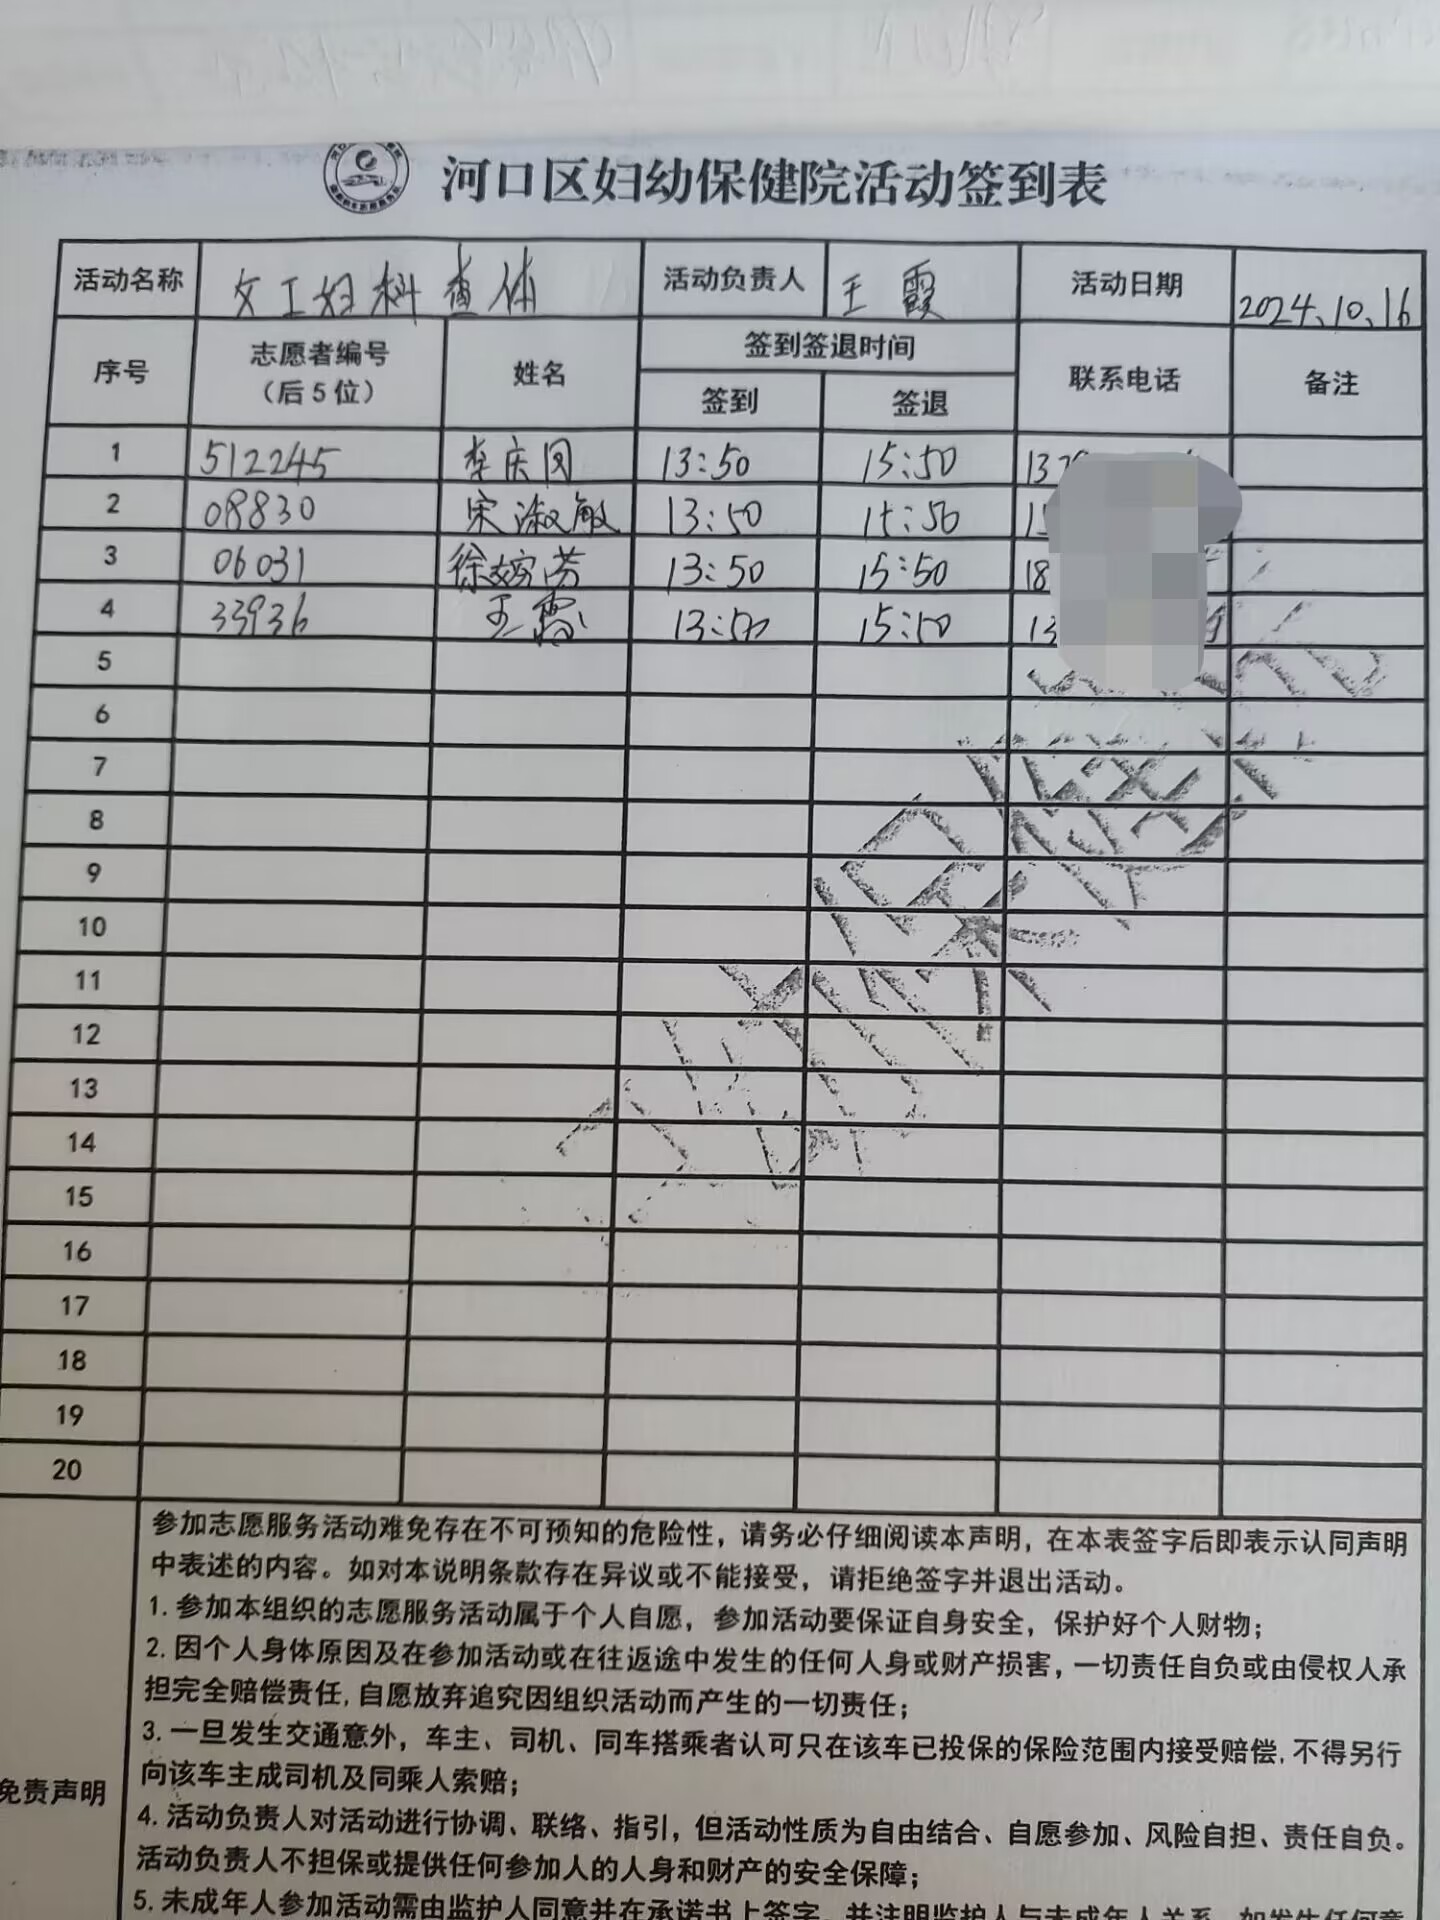 河口区妇幼保健院活动签到表
活动名称 女工妇科查体 活动负责人 王霞 活动日期 2024.10.16
序号 志愿者编号（后5位） 姓名 签到签退时间 联系电话 备注
签到 签退
1 512245 李庆 13:50 15:50 137
2 08830 宋淑敏 13:50 15:50 1
3 06031 徐婷芳 13:50 15:50 18
4 33936 王霞 13:50 15:50 13
5
6
7
8
9
10
11
12
13
14
15
16
17
18
19
20
免责声明
参加志愿服务活动难免存在不可预知的危险性，请务必仔细阅读本声明，在本表签字后即表示认同声明
中表述的内容。如对本说明条款存在异议或不能接受，请拒绝签字并退出活动。
1. 参加本组织的志愿服务活动属于个人自愿，参加活动要保证自身安全，保护好个人财物；
2. 因个人身体原因及在参加活动或在往返途中发生的任何人身或财产损害，一切责任自负或由侵权人承
担完全赔偿责任,自愿放弃追究因组织活动而产生的一切责任；
3. 一旦发生交通意外，车主、司机、同车搭乘者认可只在该车已投保的保险范围内接受赔偿,不得另行
向该车主成司机及同乘人索赔；
4. 活动负责人对活动进行协调、联络、指引，但活动性质为自由结合、自愿参加、风险自担、责任自负。
活动负责人不担保或提供任何参加人的人身和财产的安全保障；
5. 未成年人参加活动需由监护人同意并在承诺书上签字，并注明监护人与未成年人关系，如发生任何意